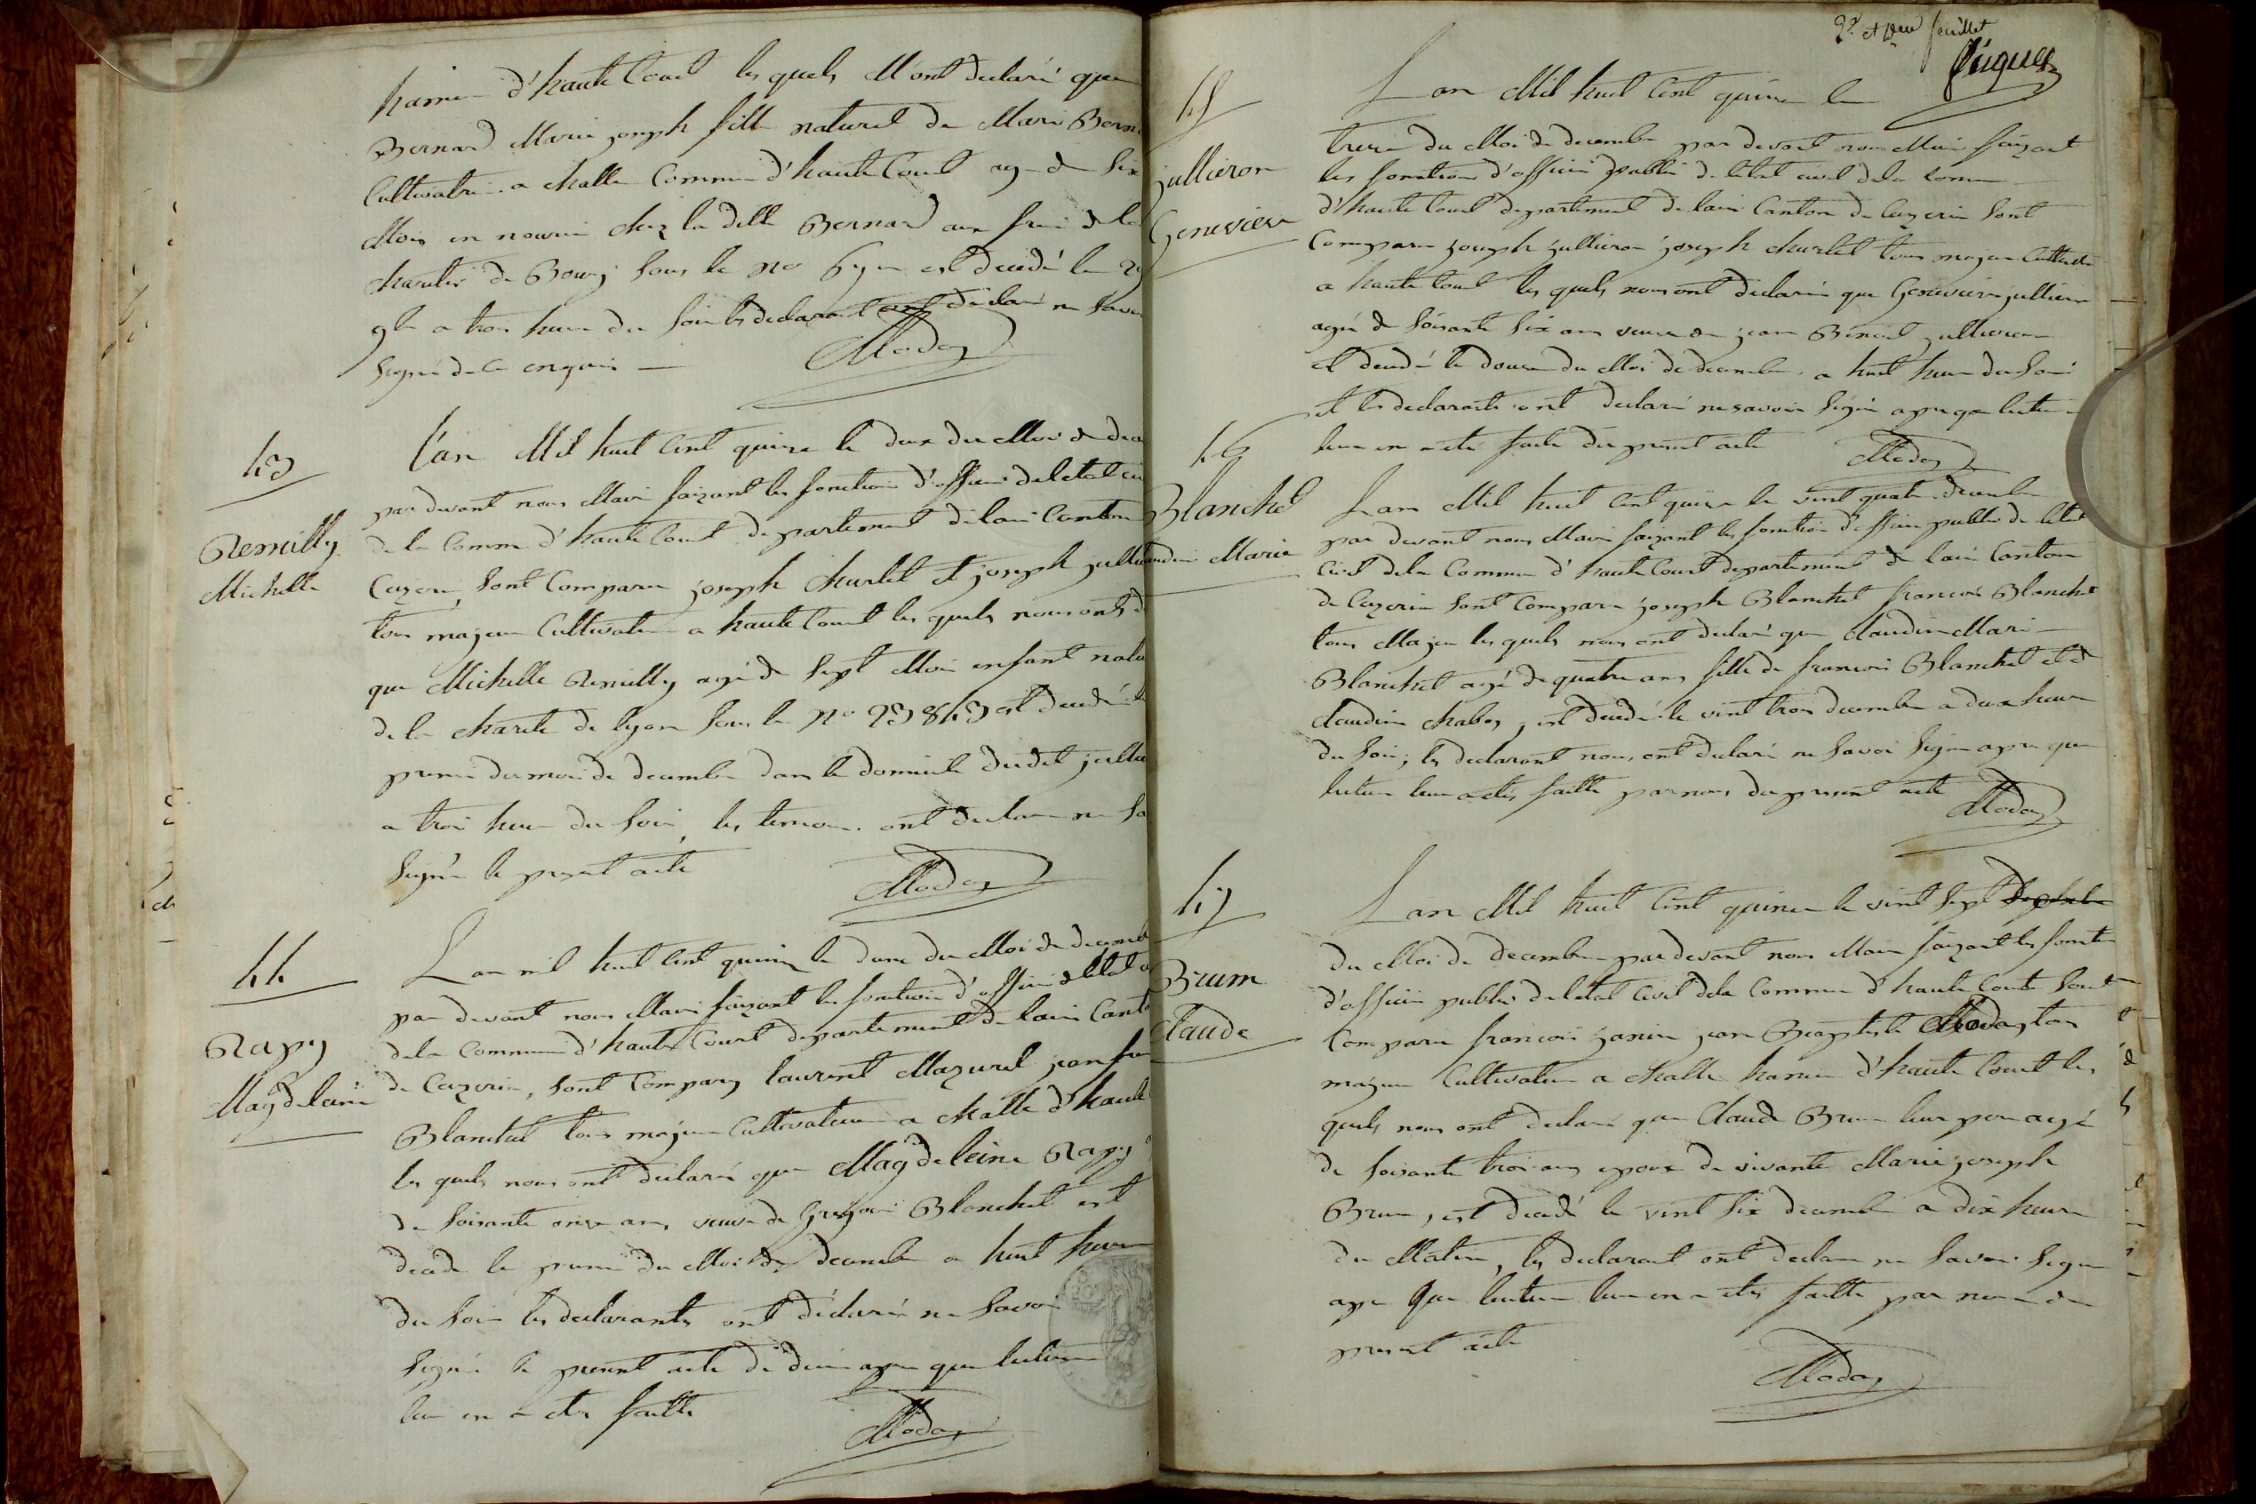 hameau d'hautecourt les quels M'ont declaré que
Bernard Marie joseph fille naturel de Marie Bern
Cultivatrice a challe Commune d'hautecourt agé de six
Mois en nouri chez la ditte Bernard aux frai de la
charité de Bourg sous le no est decedé le 29
9bre a trois heure du soir les declarant ont déclaré ne savoir
signé de ce enquis
Moday
43
Remilly
Michelle
L'an Mil huit Cent quinze le deux du Moi de dec
par devant nous Maire faizant les fonctions d'officier de letat civ
de la Commune d'hautecourt departement de lain Canton
Ceyzeria, sont Comparu joseph Churlet et joseph jullie
tous majeur Cultivateur a hautecourt les quels nous ont d
que Michelle Remilly agé de sept Moi enfant natu
de la charité de lyon sous le no 23843 est decedé le
premie du moi de decembre dans le domicile dudit jullie
a troi heure du soir, les temoin ont declaré ne sa
signé le present acte
Moday
44
Rapy
Magdeleine
L an mil huit Cent quinze le deux du Moi de decemb
par devant nous Maire faizant les fonction d'officier de letat ci
de la Commune d'hautecourt departement de lain Cant
de Ceyzeria, sont Comparu laurent Mazuret jean fran
Blanchet tous majeur Cultivateur a challe d'haute
les quels nous ont déclaré que Magdeleine Rapy
de soisante onze ans, veuve de Gregoire Blanchet est
decedé le premie du Moi de decembre a huit heure
du soir les declarants ont déclaré ne savoi
signé le present acte de deces apre que lecture
leur en a eté faitte
Moday
2e et feuillet
45
jullieron
Genevieve
L an Mil huit Cent quinze le
treize du Moi de decembre par devant nous Maire faizant
les fonction d'officier public de letat civil de la Comune
d'hautecourt departement de lain Canton de Ceyzeria sont
Comparu joseph jullieron joseph churlet tous majeur Cultivate
a hautecourt les quels nous ont déclaré que Genevieve jullieron
agé de soisante six ans veuve de jean Benoit jullieron
est decedé le douze du Moi de decembre a huit heure du soir
et les declarants ont declaré ne savoir signé apre que lecture
leur en a eté faite du present acte
Moday
46
Blanchet
Claudine Marie
L an Mil huit Cent quinze le vint quatre decembre
par devant nous Maire faizant les fonction d'officier public de letat
Civil de la Commune d'hautecourt departement de lain Canton
de Ceyzeria sont Comparu joseph Blanchet francois Blanchet
tous Majeur les quels nous ont declaré que Claudine Marie
Blanchet agé de quatre ans fille de francois Blanchet et de
claudine chabey, est decedé le vint trois decembre a deux heure
du soir, les declarant nous ont declaré ne savoir signé apre que
lecture leur a eté faitte par nous du present acte
Moday
47
Brum
Claude
L an Mil huit Cent quinze le vint sept
du Moi de decembre par devant nous Maire faizant les foncti
d'officier public de létat Civil de la Commune d'hautecourt sont
Comparu francois janin jean Baptiste Moday tous
majeur Cultivateur a challe hameau d'hautecourt les
quels nous ont declaré que Claude Brum leur pere agé
de soisante trois ans epoux de vivante Marie joseph
Brum, est decedé le vint six decembre a dix heure
du Matin, les declarant ont declaré ne savoir signe
apre que lecture leur en a eté faitte par nous du
present acte
Moday